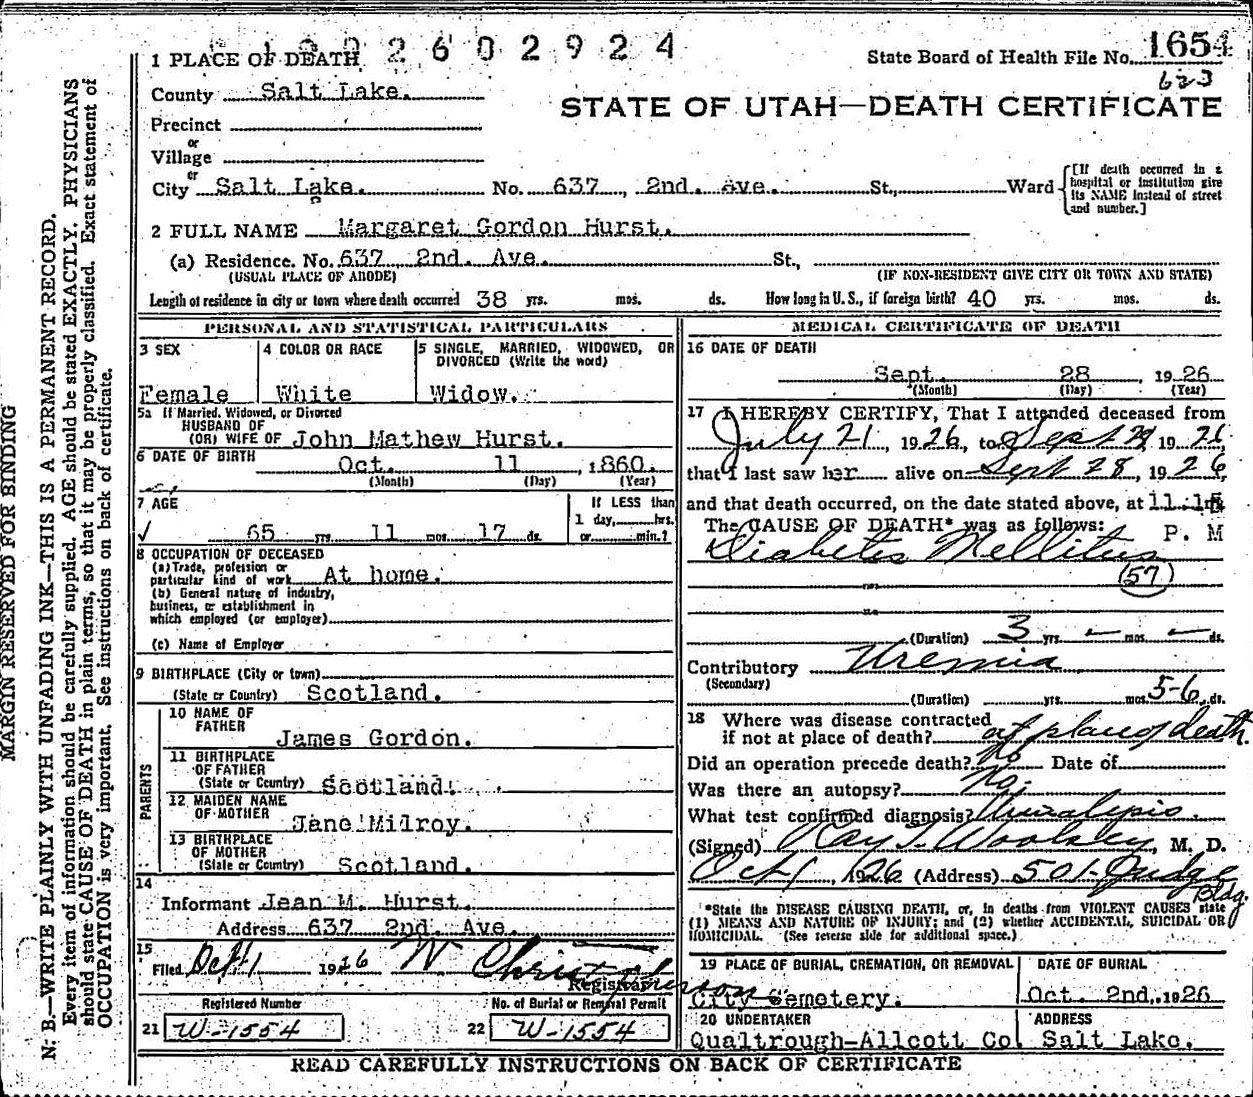 1 PLACE OF DEATH 2602924
State Board of Health File No. 1654
623
County Salt Lake.
STATE OF UTAH—DEATH CERTIFICATE
Precinct
or
Village
or
City Salt Lake. No. 637, 2nd. Ave. St., Ward
[If death occurred in a hospital or institution give its NAME instead of street and number.]
2 FULL NAME Margaret Gordon Hurst.
(a) Residence. No. 637 2nd. Ave. St.,
(USUAL PLACE OF ABODE) (IF NON-RESIDENT GIVE CITY OR TOWN AND STATE)
Length of residence in city or town where death occurred 38 yrs. mos. ds. How long in U. S., if foreign birth? 40 yrs. mos. ds.
PERSONAL AND STATISTICAL PARTICULARS
3 SEX
Female
4 COLOR OR RACE
White
5 SINGLE, MARRIED, WIDOWED, OR
DIVORCED (Write the word)
Widow.
5a If Married, Widowed, or Divorced
HUSBAND OF
(OR) WIFE OF John Mathew Hurst.
6 DATE OF BIRTH Oct. 11, 1860.
(Month) (Day) (Year)
7 AGE
65 yrs 11 mos. 17 ds.
If LESS than
1 day, hrs.
or min.?
8 OCCUPATION OF DECEASED
(a) Trade, profession or
particular kind of work At home.
(b) General nature of industry,
business, or establishment in
which employed (or employer)
(c) Name of Employer
9 BIRTHPLACE (City or town)
(State or Country) Scotland.
PARENTS
10 NAME OF
FATHER
James Gordon.
11 BIRTHPLACE
OF FATHER
(State or Country) Scotland.
12 MAIDEN NAME
OF MOTHER
Jane Milroy.
13 BIRTHPLACE
OF MOTHER
(State or Country) Scotland.
14
Informant Jean M. Hurst.
Address 637 2nd. Ave.
15
Filed Oct 1 1926 W Christopherson
Registrar
Registered Number
21 W-1554
No. of Burial or Removal Permit
22 W-1554
MEDICAL CERTIFICATE OF DEATH
16 DATE OF DEATH
Sept. 28, 1926
(Month) (Day) (Year)
17 I HEREBY CERTIFY, That I attended deceased from
July 21, 1926, to Sept 28 1926,
that I last saw her alive on Sept 28, 1926,
and that death occurred, on the date stated above, at 11:15
P. M
The CAUSE OF DEATH* was as follows:
Diabetes Mellitus
(57)
(Duration) 3 yrs. – mos. – ds.
Contributory Uremia
(Secondary)
(Duration) yrs. mos. 5-6 ds.
18 Where was disease contracted
if not at place of death? at place of death
Did an operation precede death? No Date of
Was there an autopsy? No.
What test confirmed diagnosis? Urinalysis
(Signed) Ray T. Woolsey, M. D.
Oct 1, 1926 (Address) 501 Judge
Bldg.
*State the DISEASE CAUSING DEATH, or, in deaths from VIOLENT CAUSES state
(1) MEANS AND NATURE OF INJURY; and (2) whether ACCIDENTAL, SUICIDAL OR
HOMICIDAL. (See reverse side for additional space.)
19 PLACE OF BURIAL, CREMATION, OR REMOVAL
City Cemetery.
DATE OF BURIAL
Oct. 2nd, 1926
20 UNDERTAKER
Qualtrough-Allcott Co.
ADDRESS
Salt Lake.
READ CAREFULLY INSTRUCTIONS ON BACK OF CERTIFICATE
MARGIN RESERVED FOR BINDING
N. B.—WRITE PLAINLY WITH UNFADING INK—THIS IS A PERMANENT RECORD.
Every item of information should be carefully supplied. AGE should be stated EXACTLY. PHYSICIANS
should state CAUSE OF DEATH in plain terms, so that it may be properly classified. Exact statement of
OCCUPATION is very important. See instructions on back of certificate.